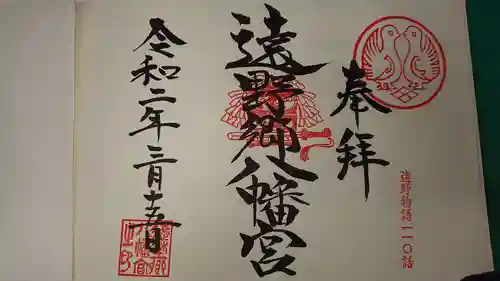 奉拝
遠野物語一一〇話
遠野郷八幡宮
令和二年三月十五日